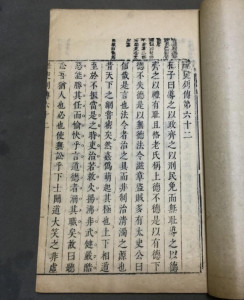 酷吏列傳第六十二
孔子曰導之以政齊之以刑民免而無恥導之以德
齊之以禮有恥且格老氏稱上德不德是以有德下
德不失德是以無德法令滋章盜賊多有太史公曰
信哉是言也法令者治之具而非制治清濁之源也
昔天下之網嘗密矣然姦偽萌起其極也上下相遁
至於不振當是之時吏治若救火揚沸非武健嚴酷
惡能勝其任而愉快乎言道德者溺其職矣故曰聽
訟吾猶人也必也使無訟乎下士聞道大笑之非虛